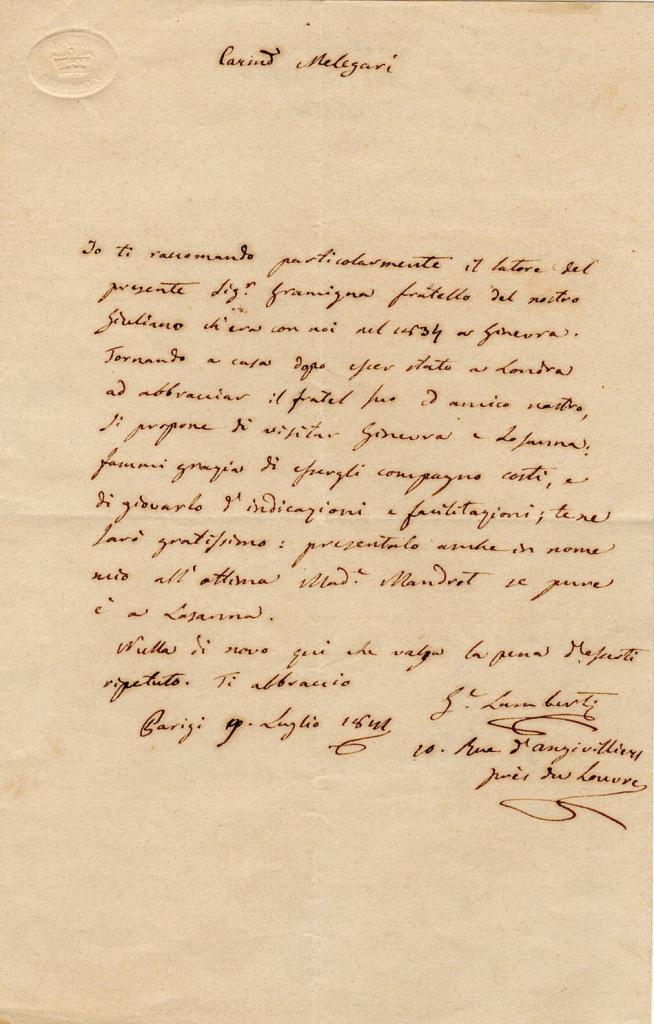 Carino Melegari
Io ti raccomando particolarmente il latore del
presente Sigr. Gramigna fratello del nostro
Giuliano ch'era con noi nel 1834 a Ginevra.
Tornando a casa dopo esser stato a Londra
ad abbracciar il fratel suo ed amico nostro,
si propone di visitar Ginevra e Losanna:
fammi grazia di essergli compagno costì, e
di giovarlo d'indicazioni e facilitazioni; te ne
sarò gratissimo: presentalo anche in nome
mio all'ottima Mad.a Mandrot se pure
è a Losanna.
Nulla di novo qui che valga la pena d'esserti
ripetuto. Ti abbraccio
Gr. Lamberti
Parigi 9. Luglio 1841
10. Rue d'angivilliers
près du Louvre